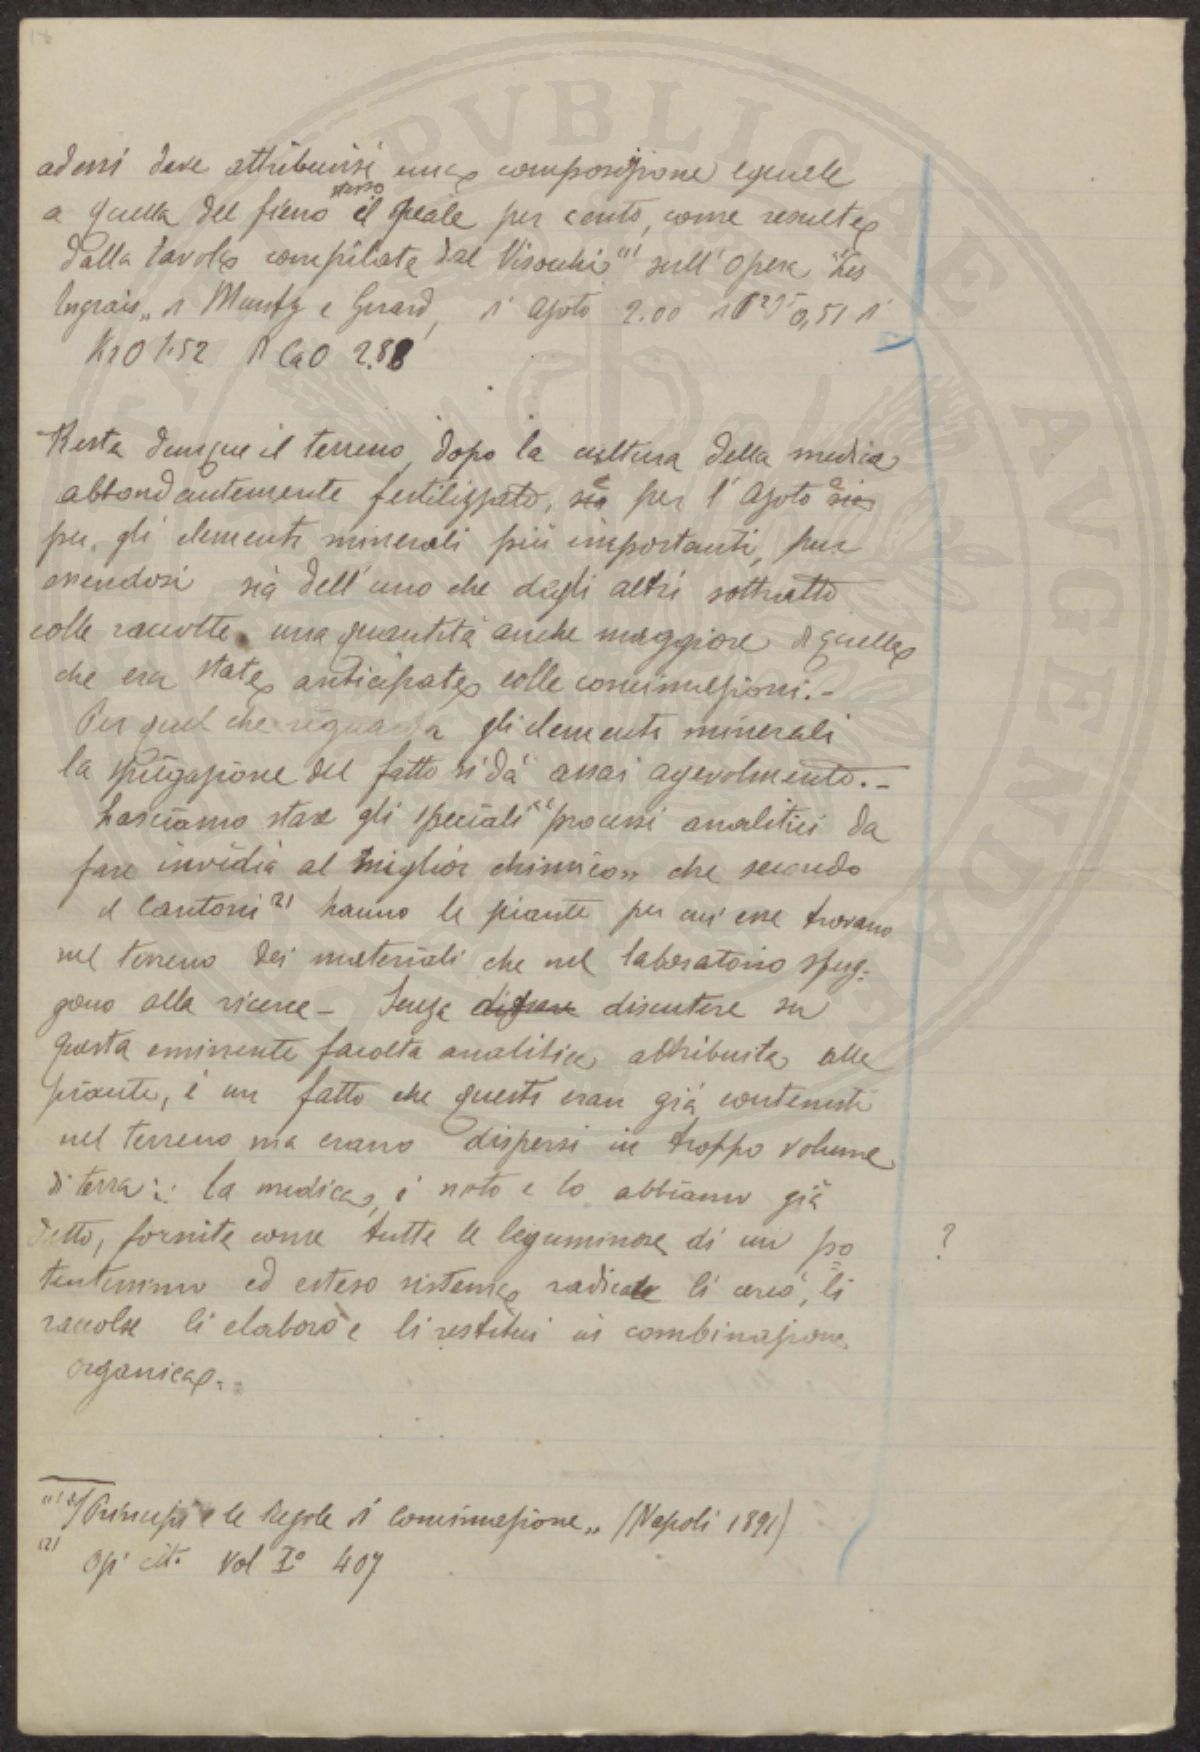 18
ad essi deve attribuirsi una composizione eguale
a quella del fieno stesso il quale per cento, come resulta
dalla tavola compilata dal Visocchi (1) sull'opera "Les
Engrais" di Muntz e Girard, di Azoto 2.00 di P2O5 0,51 di
K2O 1.52 di CaO 2.88
Resta dunque il terreno, dopo la cultura della medica
abbondantemente fertilizzato, sia e per l'Azoto sia e
per gli elementi minerali più importanti, pur
essendosi sia dell'uno che degli altri sottratto
colle raccolte una quantità anche maggiore di quella
che era stata anticipata colle concimazioni.-
Per quel che riguarda gli elementi minerali
la spiegazione del fatto si dà assai agevolmente.-
Lasciamo stare gli speciali "processi analitici da
fare invidia al miglior chimico" che secondo
il Cantoni (2) hanno le piante per cui esse trovano
nel terreno dei materiali che nel laboratorio sfug-
gono alla ricerca - Senza discutere su
questa eminente facoltà analitica attribuita alle
piante, è un fatto che questi eran già contenuti
nel terreno ma erano dispersi in troppo volume
di terra: la medica, è noto e lo abbiamo già
detto, fornita come tutte le leguminose di un po
tentissimo ed esteso sistema radicale li cercò, li
raccolse li elaborò e li restituì in combinazione
organica.
?
(1) "I Principi e le Regole di Concimazione" (Napoli 1891)
(2) Op. cit. Vol I° 407
PVBLICAE AVGENDAE